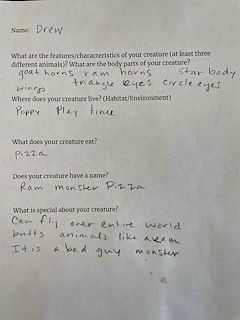 Name: Drew
What are the features/characteristics of your creature (at least three
different animals)? What are the body parts of your creature?
goat horns ram horns star body
wings triangle eyes circle eyes
Where does your creature live? (Habitat/Environment)
Poppy Play time
What does your creature eat?
Pizza
Does your creature have a name?
Ram monster Pizza
What is special about your creature?
Can fly over entire world
butts animals like a ram
It is a bad guy monster